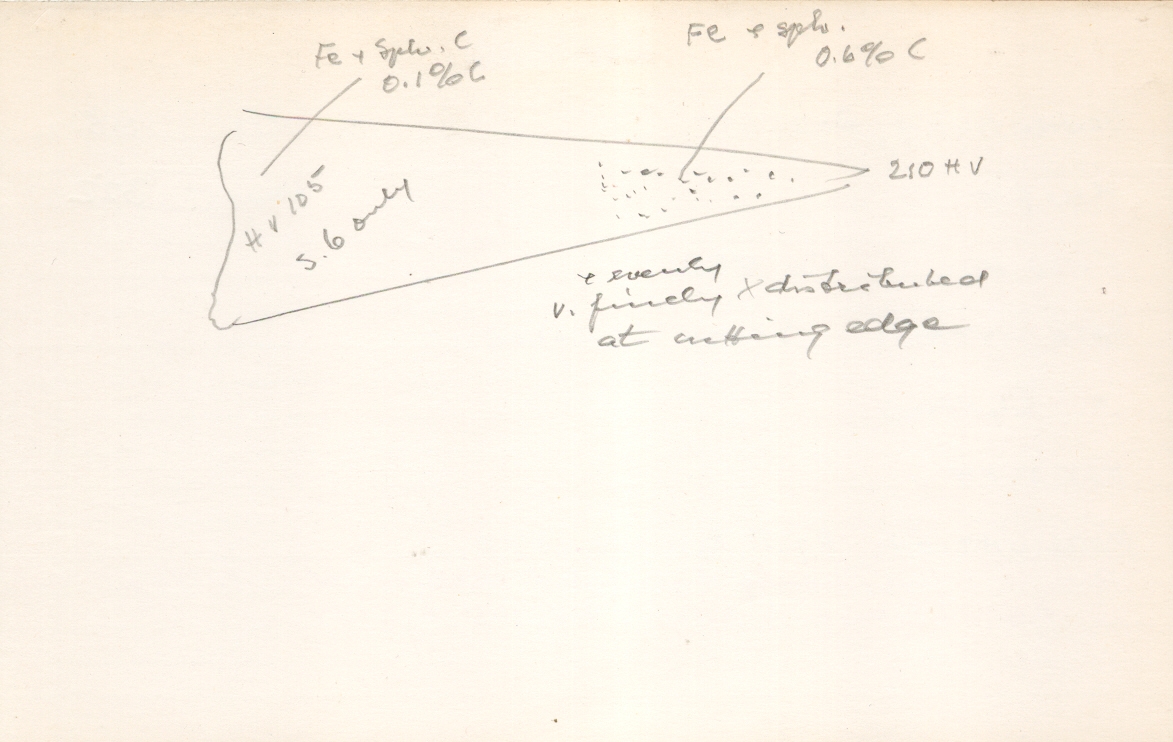 Fe + Sph. C
0.1% C
Fe + sph.
0.6% C
210 HV
HV 105
S.6 only
+ evenly
v. finely x distributed
at cutting edge